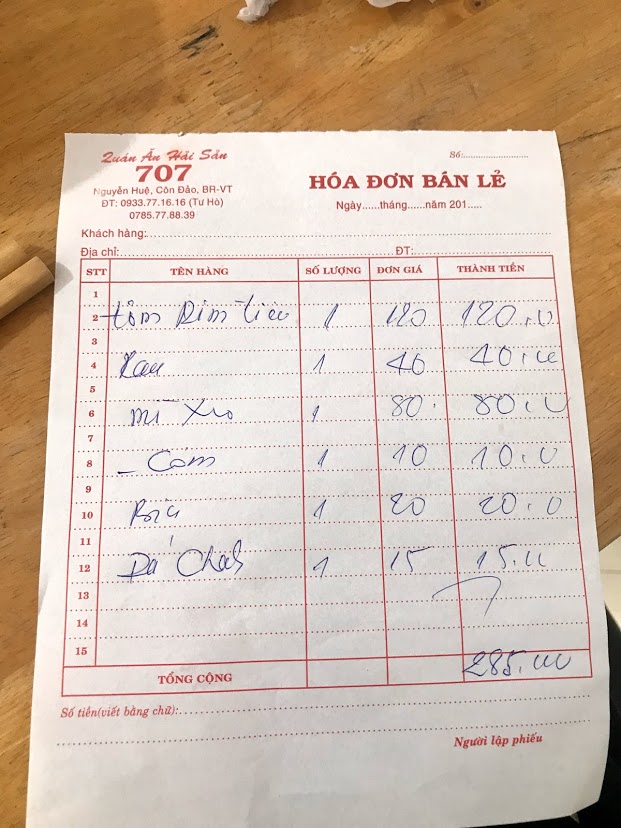 Quán Ăn Hải Sản
707
Nguyễn Huệ, Côn Đảo, BR-VT
ĐT: 0933.77.16.16 (Tư Hò)
0785.77.88.39
Số:
HÓA ĐƠN BÁN LẺ
Ngày......tháng......năm 201.....
Khách hàng:
Địa chỉ: ĐT:
STT TÊN HÀNG SỐ LƯỢNG ĐƠN GIÁ THÀNH TIỀN
1
2 tôm Rim tiêu 1 120 120.
3
4 Rau 1 40 40.
5
6 mì Xào 1 80. 80.
7
8 - Cơm 1 10 10.
9
10 Bia 1 20 20.
11
12 Dá Chanh 1 15 15.
13
14
15
TỔNG CỘNG 285.
Số tiền(viết bằng chữ):
Người lập phiếu